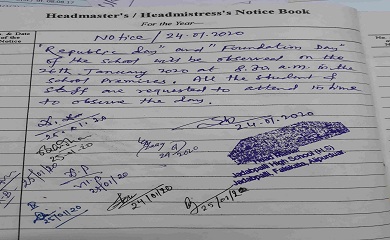 Headmaster's / Headmistress's Notice Book
For the Year
& Date of the Notice
Notice / 24.01.2020
"Republic day" and "Foundation Day"
of the school will be observed on the
26th January 2020 at 8.30 a.m. in the
school premises. All the student &
staff are requested to attend in time
to observe the day.
24.01.2020
25.01.20
25.01.20
25/01/20
25/01/20
25/01/20
24/01/20
25/01/20
Jadabpalli High School (H.S)
Jadabpalli, Falakata, Alipurduar